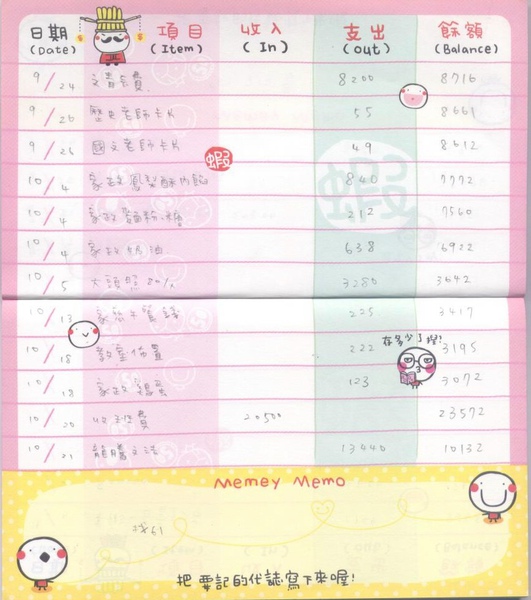 日期 項目 收入 支出 餘額
(Date) (Item) (In) (Out) (Balance)
9/24 文書卡費 8200 8716
9/26 歷史老師卡片 55 8661
9/26 國文老師卡片 49 8612
蝦
10/4 家政鳳梨酥內餡 840 7772
蝦
10/4 家政麵粉、糖 212 7560
10/4 家政奶油 638 6922
10/5 大頭照 3280 3642
10/13 225 3417
在多少了捏?
10/18 教室佈置 222 3195
10/18 家政雞蛋 123 3072
10/20 收班費 20500 23572
10/21 龍騰文法 13440 10132
Memey Memo
找61
把要記的代誌寫下來喔!